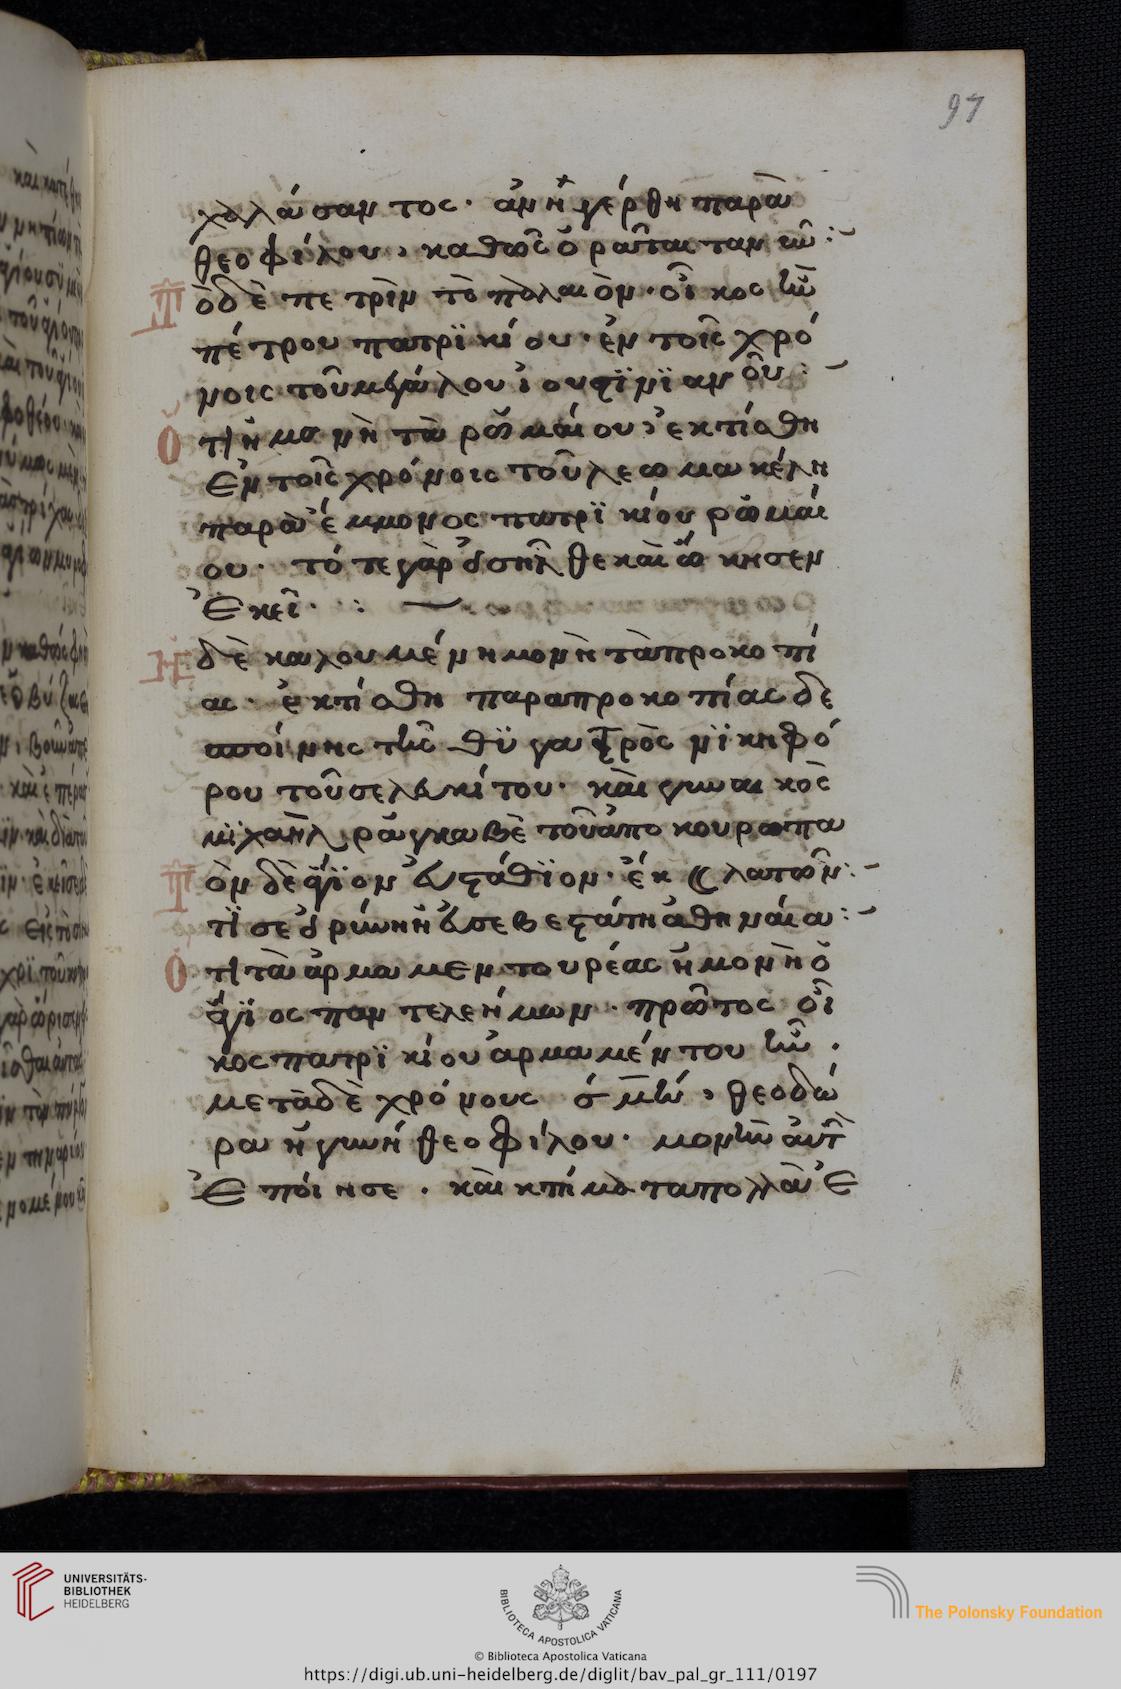 97
χαλάσαντος· ἀνηγέρθη παρὰ
θεοφίλου, καθὼς ὁρᾶται τανῦν :~
Τὸ δὲ πετρὶν τὸ παλαιὸν· οἶκος ἦν
πέτρου πατρϊκίου· ἐν τοῖς χρό
νοις τοῦ μεγάλου ἰουστϊνϊανοῦ :~
Ὅτι ἡ μονὴ τὰ ῥωμαίου, ἐκτίσθη
Ἐν τοῖς χρόνοις τοῦ λέω μακέλη
παρὰ ἔμμονος πατρϊκίου ῥωμαί
ου· τότε γὰρ εἰσῆλθε καὶ ὤκησεν
Ἐκεῖ· :~
Ἡ δὲ καλουμένη μονὴ τὰ προκοπί
ας· ἐκτίσθη παρα προκοπίας δε
σποίνης τῆς θϋγατρὸς νϊκηφό
ρου τοῦ σελευκίτου· καὶ γυναικὸς
μϊχαὴλ ῥάγκαβὲ τοῦ ἀπο κουροπα
Τὸν δὲ ἅγϊον εὐστάθϊον· ἔκ λατῶν :~
τϊσε εἰρήνη ἡ εὐσεβεστάτη ἀθηναία :~
Ὅτι τὰ ἀρμαμεντουρέας ἡ μονὴ ὁ
ἅγϊος παντελεήμων· πρῶτος οἶ
κος πατρϊκίου ἀρμαμέντου ἦν·
μετὰ δὲ χρόνους σ́ μ̄ή, θεοδώ
ρα ἡ γυνή θεοφίλου· μονὴν αὐτὸ
Ἐποίησε· καὶ κτήματα πολλὰ ἐ
UNIVERSITÄTS-
BIBLIOTHEK
HEIDELBERG
BIBLIOTECA APOSTOLICA VATICANA
The Polonsky Foundation
© Biblioteca Apostolica Vaticana
https://digi.ub.uni-heidelberg.de/diglit/bav_pal_gr_111/0197